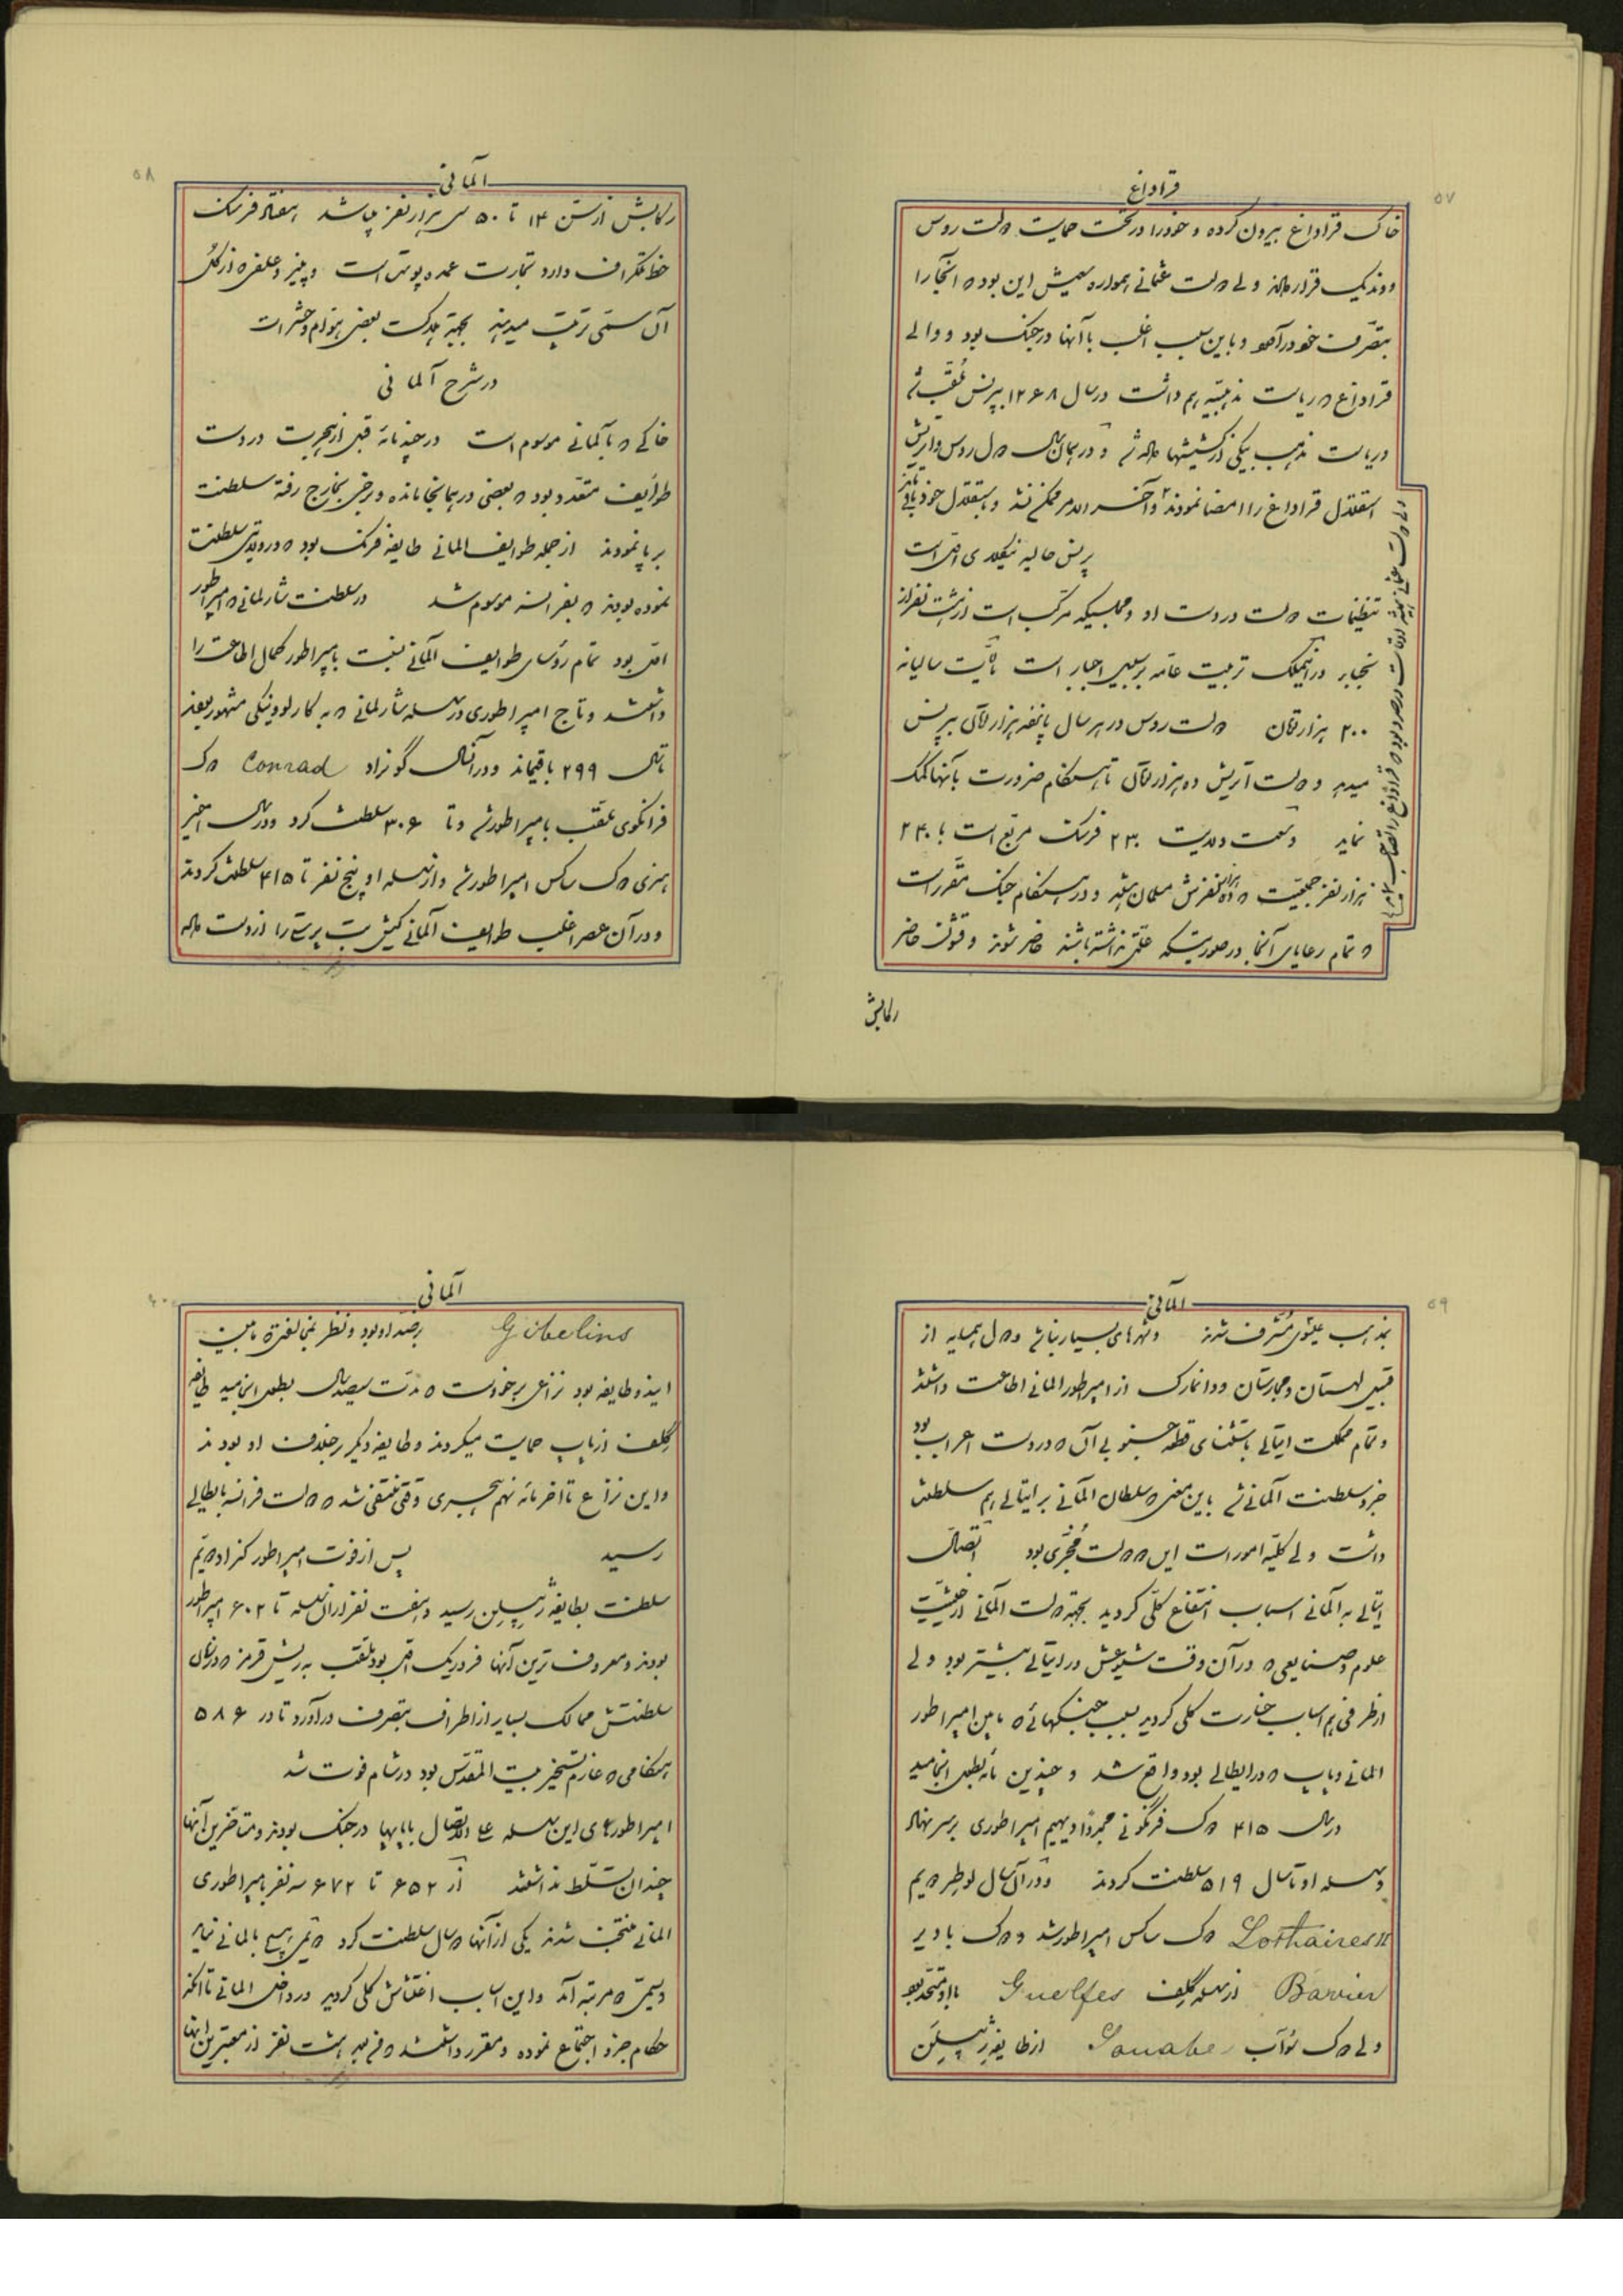 ۵۷
قراداغ
خاک قراداغ بیرون کرده و خود را در تحت حمایت دولت روس
و وندیک قرار دادند ولی دولت عثمانی همواره سعیش این بود که آنجا را
بتصرف خود درآورد و باین سبب اغلب با آنها در جنک بود و والی
قراداغ که ریاست مذهبیه هم داشت در سال ۱۲۶۸ بپرنس ملقب شد
و ریاست مذهب بیکی از کشیشها داده شد و در همان سال دول روس و اتریش
استقلال قراداغ را امضا نمودند و آخر الامر ممکن نشد و باستقلال خود باقی
پرنس حالیه نیکلای اول است
تنظیمات دولت در دست او و مجلسیکه مرکب است از هشت نفر از
نجبا در اینملک تربیت عامه بر سبیل اجبار است مالیات سالیانه
۲۰۰ هزار تومان دولت روس در هر سال پانصد هزار تومان بپرنس
میدهد و دولت آتریش ده هزار تومان تا هنگام ضرورت بآنها کمک
نماید وسعت ولایت ۲۳۰ فرسنک مربع است با ۲۴۰
هزار نفر جمعیت که ده هزار نفرش مسلمان میباشد و در هنگام جنک مقرر است
که تمام رعایای آنجا در صورتیکه علتی نداشته باشند حاضر شوند و قشون حاضر
ولی دولت عثمانی بیشتر اوقات در صدد بود که قراداغ را تصاحب
رکابش
۵۸
آلمانی
رکابش از سن ۱۴ تا ۵۰ سی هزار نفر میباشد هفتاد فرسنک
خط تلگراف دارد تجارت عمده پوست است و پنیر و علفی که از گل
آن سمی ترتیب میدهند بجهة هلاکت بعضی هوام و حشرات
در شرح آلمانی
خاکی که بآلمانی موسوم است در چند مائه قبل از هجرت در دست
طوایف متعدد بود که بعضی در همانجا مانده و برخی بخارج رفته سلطنت
برپا نمودند از جمله طوایف المانی طایفه فرنک بود که در ولایتی سلطنت
نموده بودند که بفرانسه موسوم شد در سلطنت شارلمانی که امپراطور
اول بود تمام رؤسای طوایف آلمانی نسبت بامپراطور کمال اطاعت را
داشتند و تاج امپراطوری در سلسله شارلمانی که به کارلوونیکی مشهور بودند
تا سال ۲۹۹ باقیماند و در آنسال گونراد Conrad دوک
فرانکونی ملقب بامپراطور شد و تا ۳۰۶ سلطنت کرد و در سال اخیر
هنری دوک ساکس امپراطور شد و از سلسله او پنج نفر تا ۴۱۵ سلطنت کردند
و در آن عصر اغلب طوایف آلمانی کیش بت پرستی را از دست داده
۵۹
آلمانی
بمذهب عیسوی مشرف شدند و شهرهای بسیار بنا شد و دول همسایه از
قبیل لهستان و مجارستان و دانمارک از امپراطور المانی اطاعت داشتند
و تمام مملکت ایتالی باستثنای قطعه جنوبی آن که در دست اعراب بود
جزو سلطنت آلمانی شد باین معنی که سلطان آلمانی بر ایتالی هم سلطنت
داشت ولی کلیه امورات این دو دولت مجزی بود اتصال
ایتالی به آلمانی اسباب انتفاع کلی گردید بجهة دولت آلمانی از حیثیت
علوم و صنایعی که در آن وقت شیوعش در ایتالی بیشتر بود ولی
از طرفی هم اسباب خسارت کلی گردید بسبب جنگهائی که مابین امپراطور
المانی و پاپ که در ایطالی بود واقع شد و چندین مائه بطول انجامید
در سال ۴۱۵ دوک فرنگونی مجددا دیهیم امپراطوری بر سر نهاد
و سلسله او تا سال ۵۱۹ سلطنت کردند و در آن سال لوطر دویم
Lothaires II دوک ساکس امپراطور شد و دوک باویر
Bavier از سلسله گلف Guelfes با او متحد بود
ولی دوک سوآب Souabe از طایفه ژیبلین
۶۰
آلمانی
Gibelins بر ضد او بود و نظر بمخالفتی که مابین
این دو طایفه بود نزاعی برخواست که مدت سیصد سال بطول انجامید طایفه
گلف از پاپ حمایت میکردند و طایفه دیگر بر خلاف او بودند
و این نزاع تا آخر مائه نهم هجری وقتی منقضی شد که دولت فرانسه بایطالی
رسید پس از فوت امپراطور کنراد دویم
سلطنت بطایفه ژیبلین رسید و هفت نفر از آن سلسله تا ۶۰۲ امپراطور
بودند و معروف ترین آنها فردریک اول بود ملقب به ریش قرمز که در زمان
سلطنتش ممالک بسیار از اطراف بتصرف درآورد تا در ۵۸۶
هنگامی که عازم تسخیر بیت المقدس بود در شام فوت شد
امپراطورهای این سلسله علی الاتصال با پاپها در جنک بودند و متاخرین آنها
چندان تسلط نداشتند از ۶۵۲ تا ۶۷۲ سه نفر بامپراطوری
المانی منتخب شدند یکی از آنها دو سال سلطنت کرد دویمی هیچ بالمانی نیامد
و سیمی دو مرتبه آمد و این اسباب اغتشاش کلی گردید در داخل المانی تا آنکه
حکام جزو اجتماع نموده و مقرر داشتند که من بعد هشت نفر از معتبرین آنها